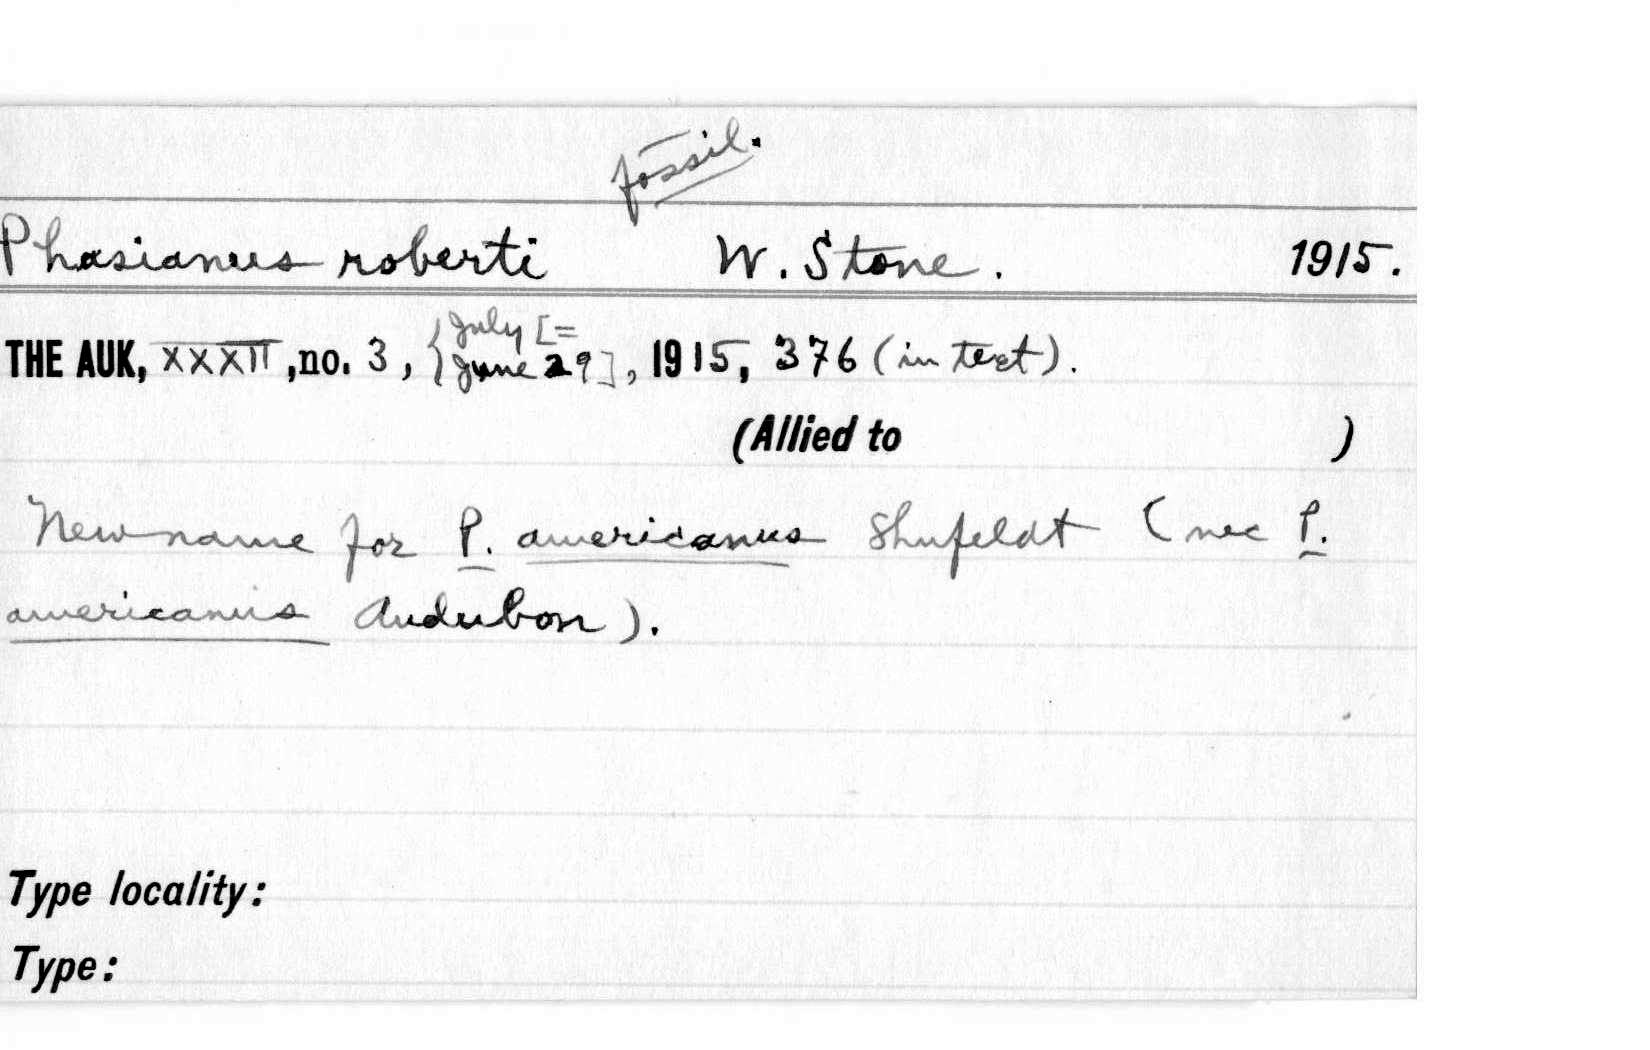 fossil.
Phasianus roberti W. Stone. 1915.
THE AUK, XXXII, no. 3, {July [=
June 29], 1915, 376 (in text).
(Allied to )
New name for P. americanus Shufeldt (nec P.
americanus Audubon).
Type locality:
Type: